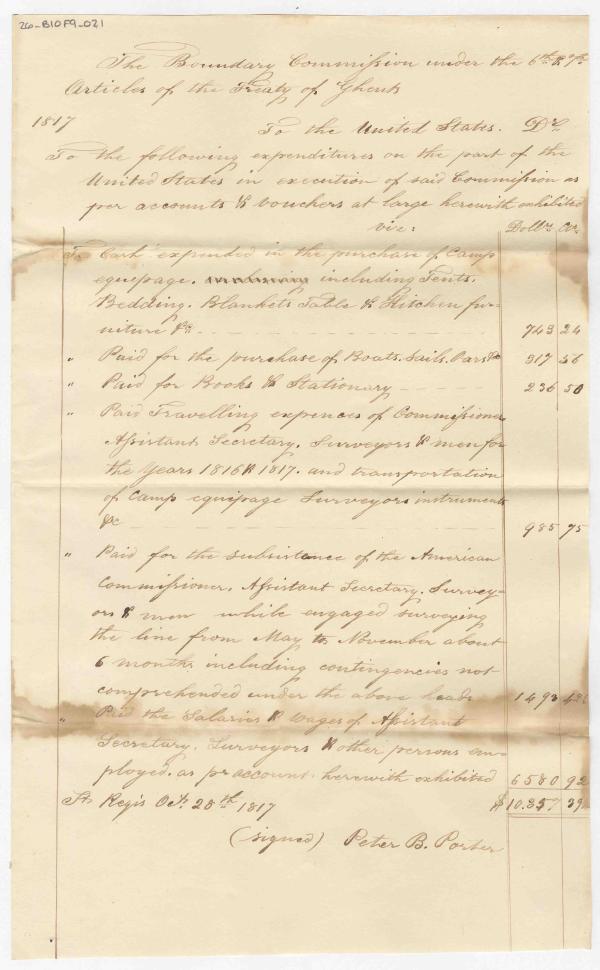 26-B10F9-021
The Boundary Commission under the 6th & 7th
Articles of the Treaty of Ghent
1817 To the United States. Dr.
To the following expenditures on the part of the
United States in execution of said Commission as
per accounts & vouchers at large herewith exhibited
viz: Dolls. Cts.
To Cash expended in the purchase of Camp
equipage. including Tents.
Bedding. Blankets Table & Kitchen fur-
niture &c 743 24
" Paid for the purchase of Boats. Sails. Oars &c 317 56
" Paid for Books & Stationary 236 50
" Paid Travelling expences of Commissioner
Assistant Secretary. Surveyors & men for
the Years 1816 & 1817. and transportation
of Camp equipage Surveyors instruments
&c 985 75
" Paid for the subsistance of the American
Commissioner. Assistant Secretary. Survey-
ors & men while engaged surveying
the line from May to November about
6 months including contingencies not
comprehended under the above heads 1493 42
" Paid the Salaries & wages of Assistant
Secretary. Surveyors & other persons em-
ployed. as pr account herewith exhibited 6580 92
St. Regis Octr. 28th 1817 $10.357 39
(signed) Peter B. Porter